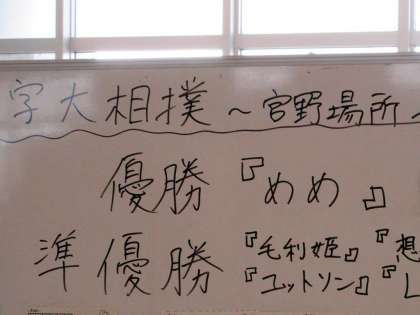 字大相撲 ~宮野場所~
優勝『めめ』
準優勝『毛利姫』『想
『ユットソン』『し